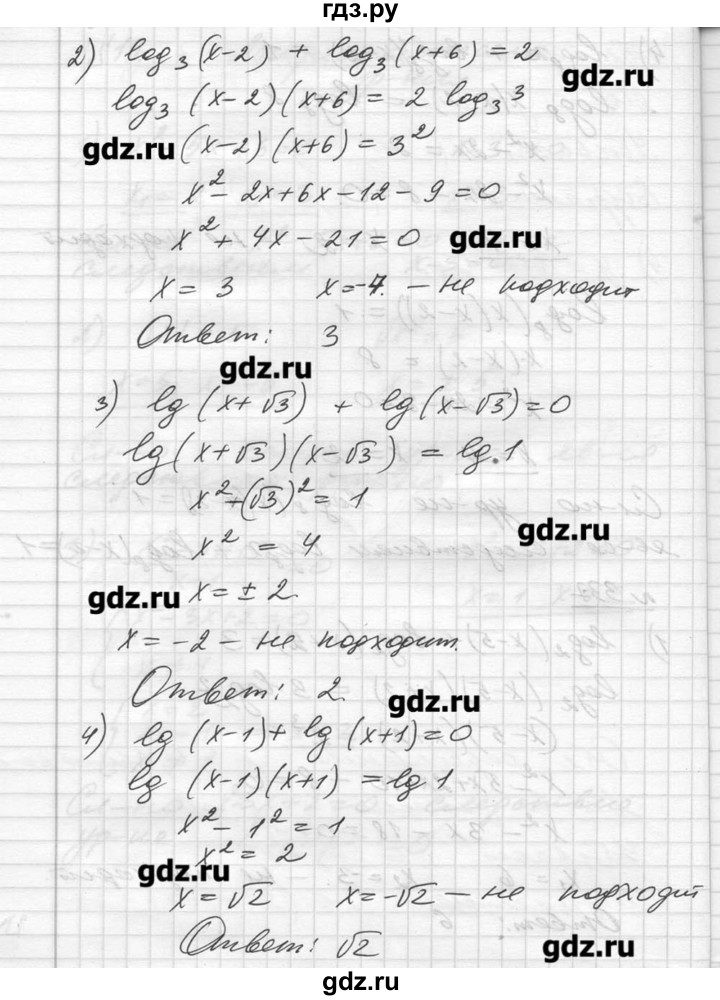 гдз.ру
2) log₃(x-2) + log₃(x+6) = 2
gdz.ru
log₃ (x-2)(x+6) = 2 log₃ 3
gdz.ru
(x-2)(x+6) = 3²
x² - 2x + 6x - 12 - 9 = 0
x² + 4x - 21 = 0
gdz.ru
x = 3 x = -7. – не подходит
Ответ: 3
gdz.ru
3) lg(x+√3) + lg(x-√3) = 0
lg(x+√3)(x-√3) = lg 1
x² - (√3)² = 1
gdz.ru
x² = 4
gdz.ru
x = ± 2.
x = -2 – не подходит.
Ответ: 2.
gdz.ru
4) lg (x-1) + lg (x+1) = 0
lg (x-1)(x+1) = lg 1
x² - 1² = 1
x² = 2
gdz.ru
x = √2 x = -√2 – не подходит
Ответ: √2
gdz.ru
gdz.ru